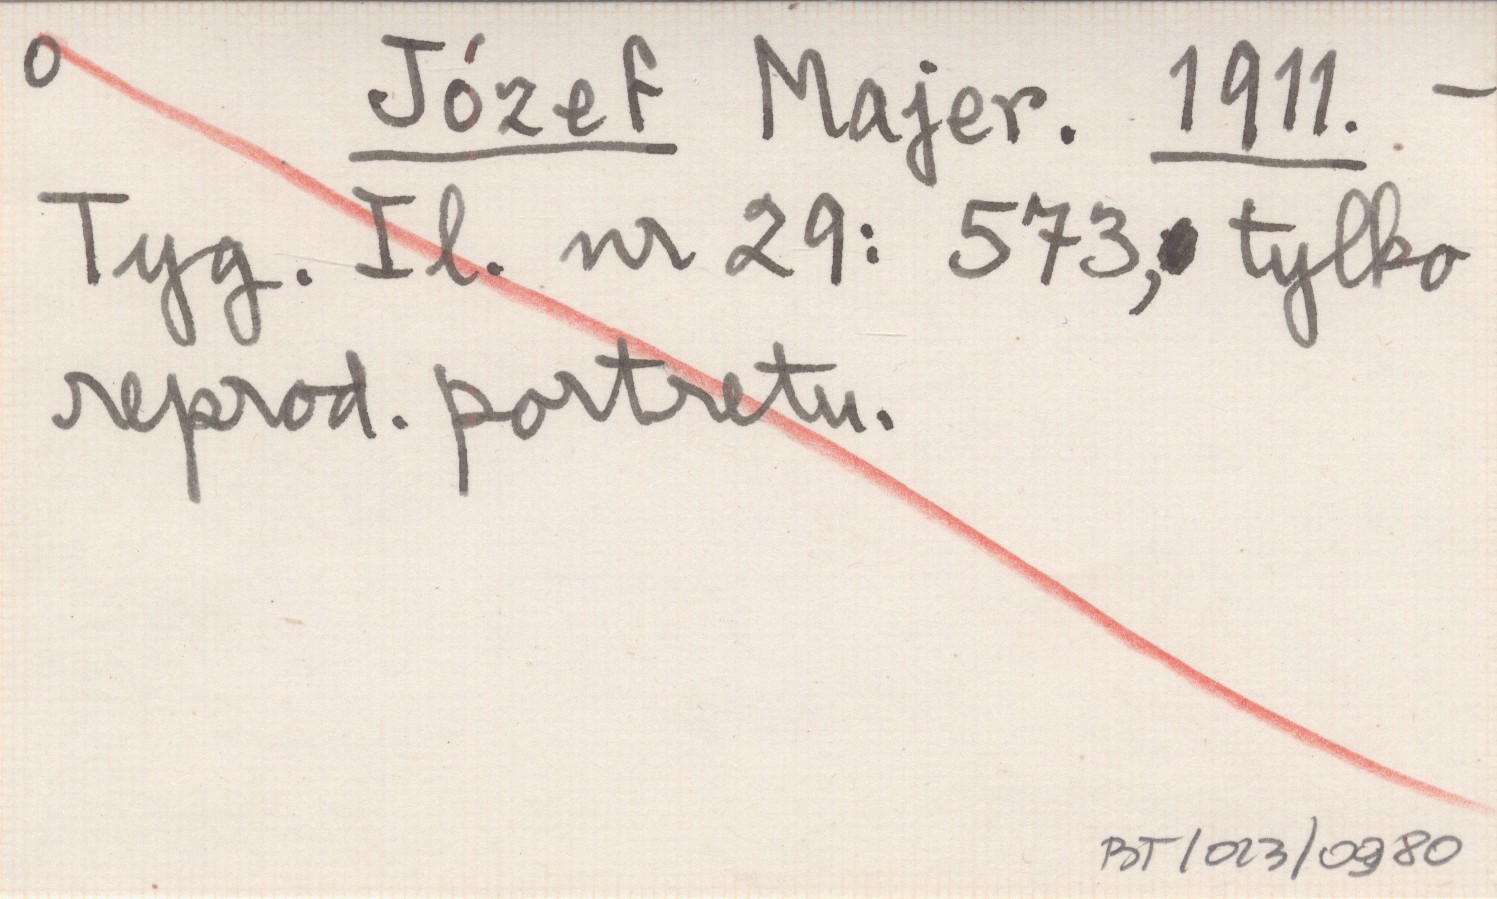 o Józef Majer. 1911. –
Tyg. Il. nr 29: 573, tylko
reprod. portretu.
BT/023/0980